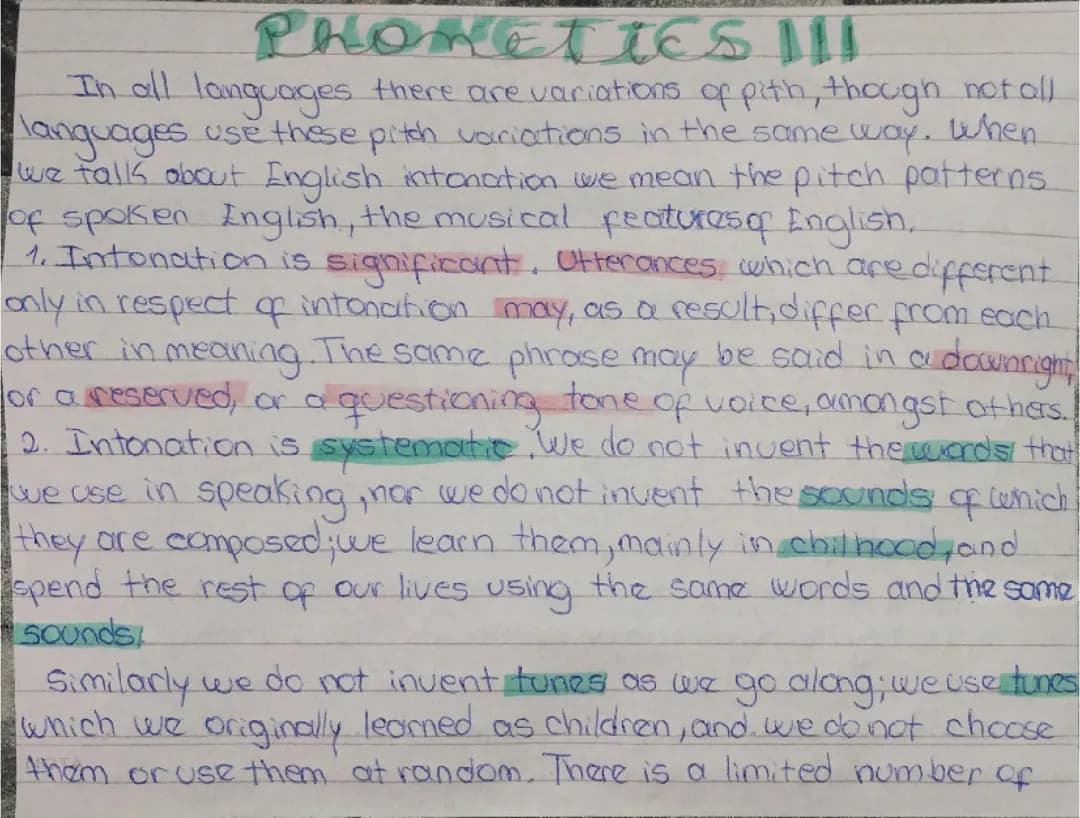 PHONETICS III
In all languages there are variations of pith, though not all
languages use these pitch variations in the same way. When
we talk about English intonation we mean the pitch patterns
of spoken English, the musical features of English.
1. Intonation is significant. Utterances, which are different
only in respect of intonation may, as a result, differ from each
other in meaning. The same phrase may be said in a downright,
or a reserved, or a questioning tone of voice, amongst others.
2. Intonation is systematic. We do not invent the words that
we use in speaking, nor we do not invent the sounds of which
they are composed; we learn them, mainly in chilhood, and
spend the rest of our lives using the same words and the same
sounds.
Similarly we do not invent tunes as we go along; we use tunes
which we originally learned as children, and we do not choose
them or use them at random. There is a limited number of